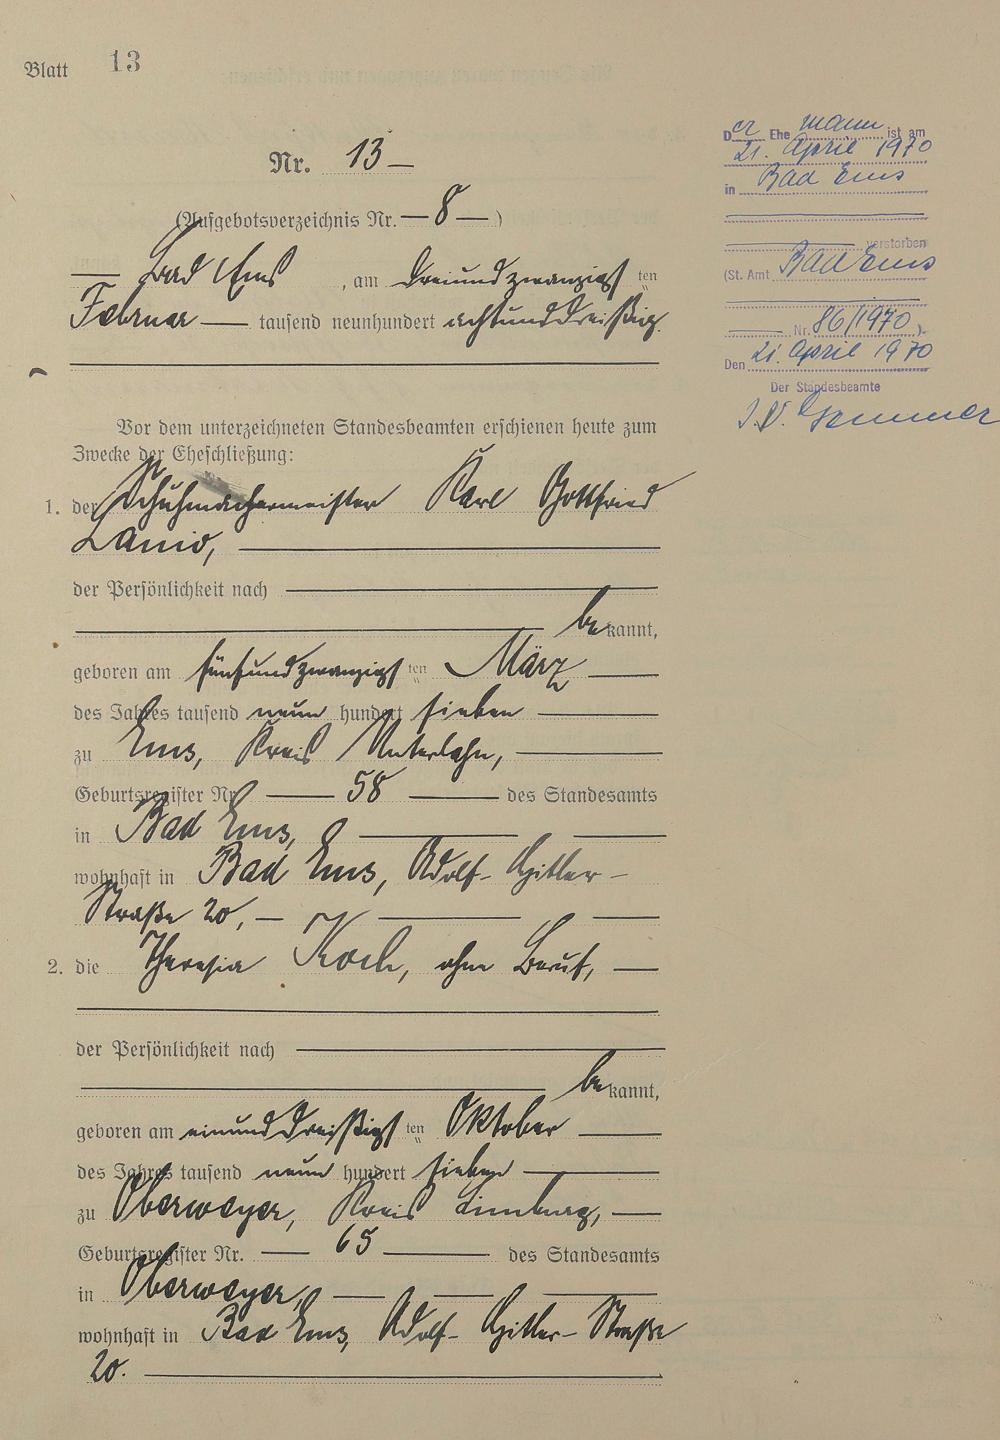 Blatt 13
Nr. 13
(Aufgebotsverzeichnis Nr. — 8 — )
Bad Ems, am dreiundzwanzigsten
Februar — tausend neunhundert achtunddreißig.
Vor dem unterzeichneten Standesbeamten erschienen heute zum
Zwecke der Eheschließung:
1. der Schuhmachermeister Karl Gottfried
Lanio,
der Persönlichkeit nach
bekannt,
geboren am fünfundzwanzigsten März
des Jahres tausend neun hundert sieben
zu Ems, Kreis Unterlahn,
Geburtsregister Nr. 58 des Standesamts
in Bad Ems,
wohnhaft in Bad Ems, Adolf-Hitler-
Straße 20,
2. die Theresia Koch, ohne Beruf,
der Persönlichkeit nach
bekannt,
geboren am einunddreißigsten Oktober
des Jahres tausend neun hundert sieben
zu Oberweyer, Kreis Limburg,
Geburtsregister Nr. 65 des Standesamts
in Oberweyer,
wohnhaft in Bad Ems, Adolf-Hitler-Straße
20.
Der Ehemann ist am
21. April 1970
in Bad Ems
verstorben
(St. Amt Bad Ems
Nr. 86/1970).
Den 21. April 1970
Der Standesbeamte
I.V.